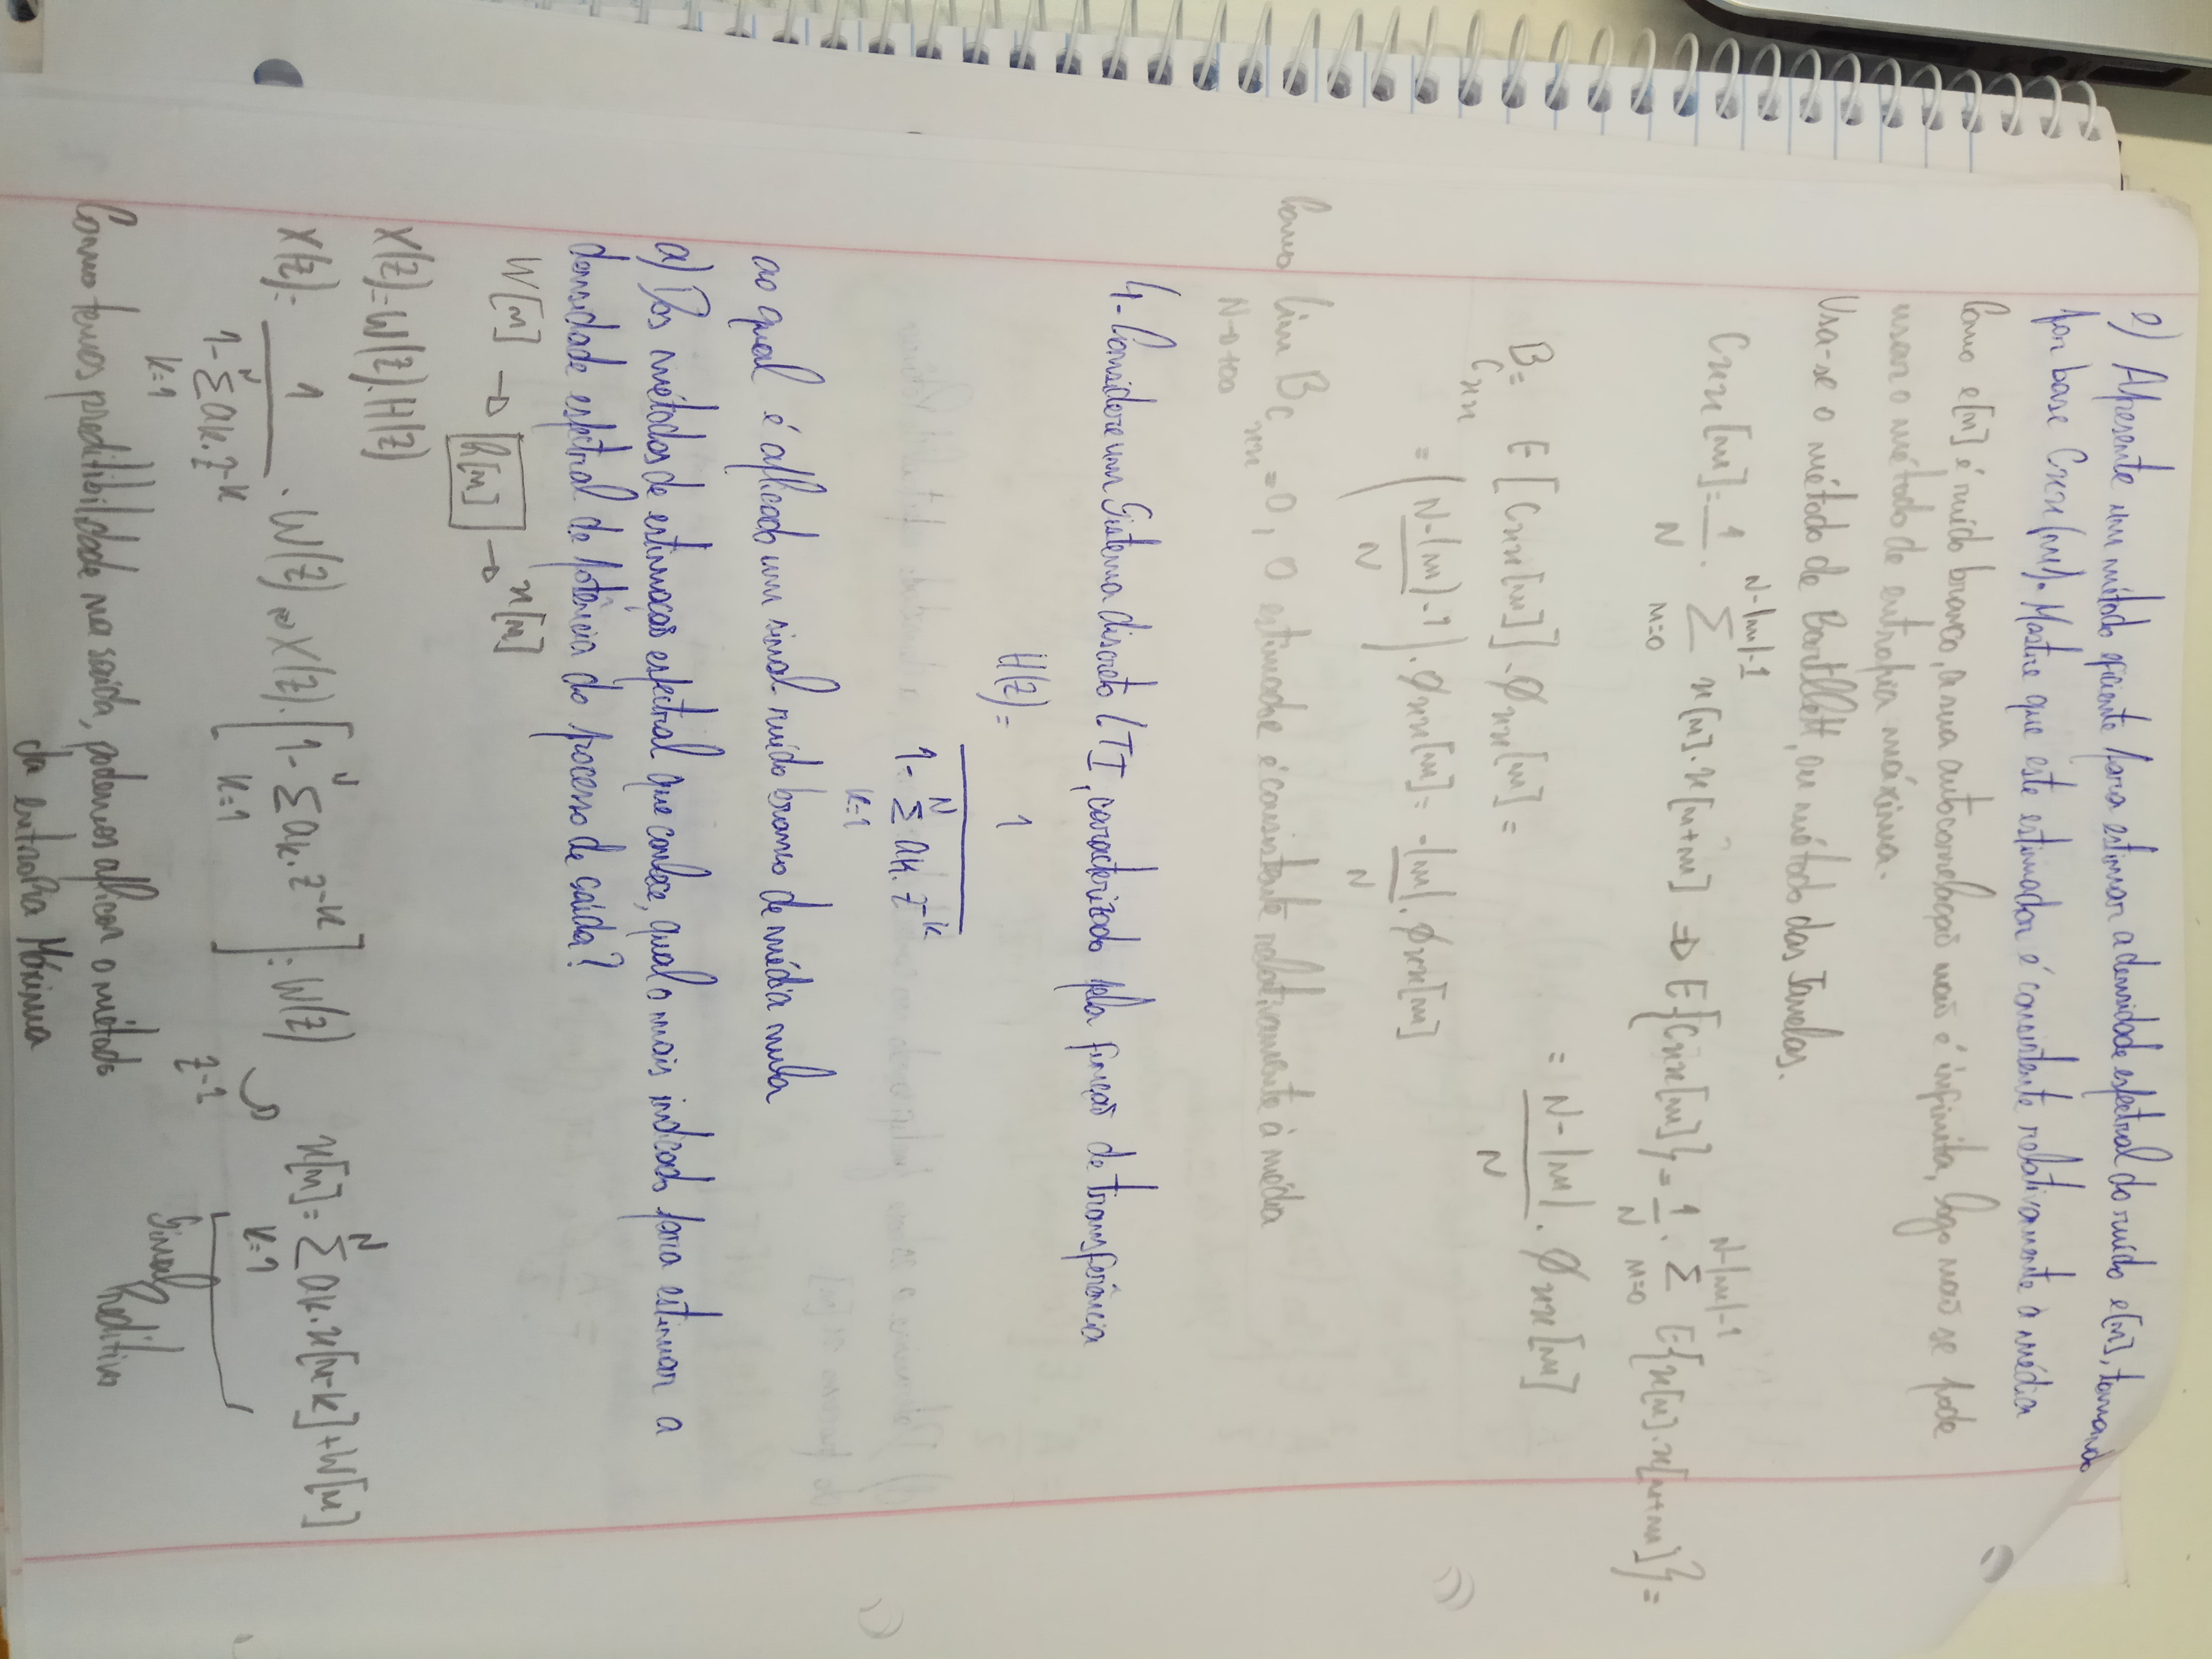 e) Apresente um método eficiente para estimar a densidade espectral do ruído e[n], tomando
por base Cxx(m). Mostre que este estimador é consistente relativamente à média
Como e[n] é ruído branco, a sua autocorrelação não é infinita, logo não se pode
usar o método de entropia máxima.
Usa-se o método de Bartllett, ou método das Janelas.
Cxx[m] = 1/N . Σ_{n=0}^{N-|m|-1} x[n].x[n+m] => E{Cxx[m]} = 1/N . Σ_{n=0}^{N-|m|-1} E{x[n].x[n+m]} =
= (N-|m|)/N . Øxx[m]
B_{Cxx} = E[Cxx[m]] - Øxx[m] =
= ((N-|m|)/N - 1) . Øxx[m] = -|m|/N . Øxx[m]
Como lim_{N→+∞} B_{Cxx} = 0, O estimador é consistente relativamente à média
4- Considere um Sistema discreto LTI, caracterizado pela função de transferência
H(z) = 1 / (1 - Σ_{k=1}^{N} ak.z^{-k})
ao qual é aplicado um sinal ruído branco de média nula
a) Dos métodos de estimação espectral que conhece, qual o mais indicado para estimar a
densidade espectral de potência do processo de saída?
W[n] → h[n] → x[n]
X(z) = W(z).H(z)
X(z) = 1 / (1 - Σ_{k=1}^{N} ak.z^{-k}) . W(z) ⇔ X(z).[1 - Σ_{k=1}^{N} ak.z^{-k}] = W(z) z^{-1} x[n] = Σ_{k=1}^{N} ak.x[n-k] + W[n]
Sinal Preditivo
Como temos preditibilidade na saída, podemos aplicar o método
da entropia Máxima